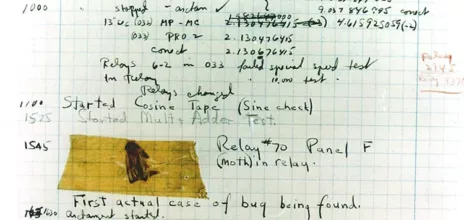 1000 " stopped - arctan ✓ 9.037 846 995 correct
13"uc (032) MP-MC 4.615925059(-2)
(033) PRO 2 2.130476415
correct 2.130676415
Relays 6-2 in 033 failed special speed test
In Relay " 10,000 test .
Relays changed
Relay
1100 Started Cosine Tape (Sine check)
1525 Started Mult + Adder Test.
1545 Relay #70 Panel F
(Moth) in relay.
First actual case of bug being found.
1630 antangent started.